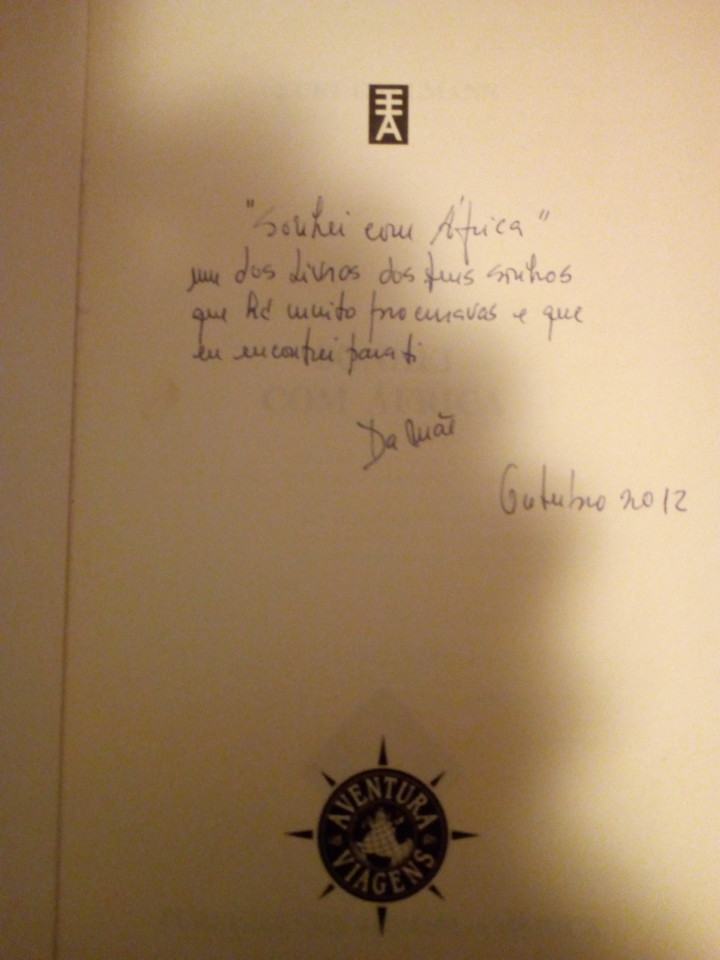 "Sonhei com África"
um dos Livros dos teus sonhos
que há muito procuravas e que
eu encontrei para ti
COM ÁFRICA
Da Mãe
Outubro 2012
AVENTURA
VIAGENS